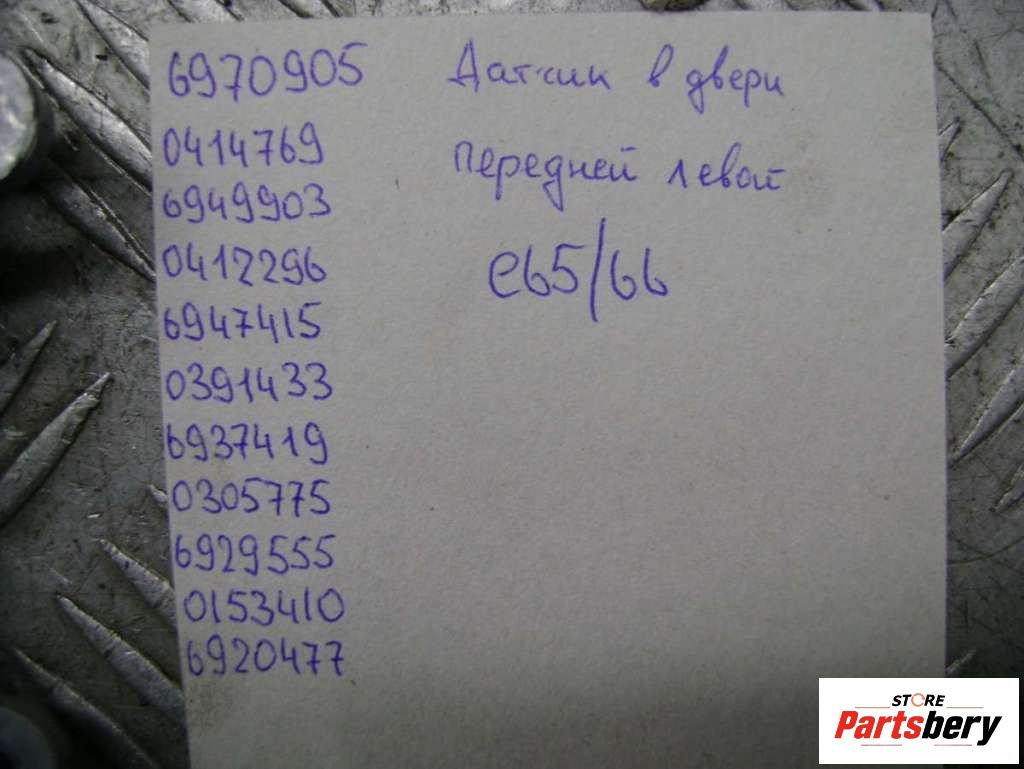 6970905 Датчик в двери
0414769
передней левой
6949903
0412296
e65/66
6947415
0391433
6937419
0305775
6929555
0153410
6920477
STORE
Partsbery